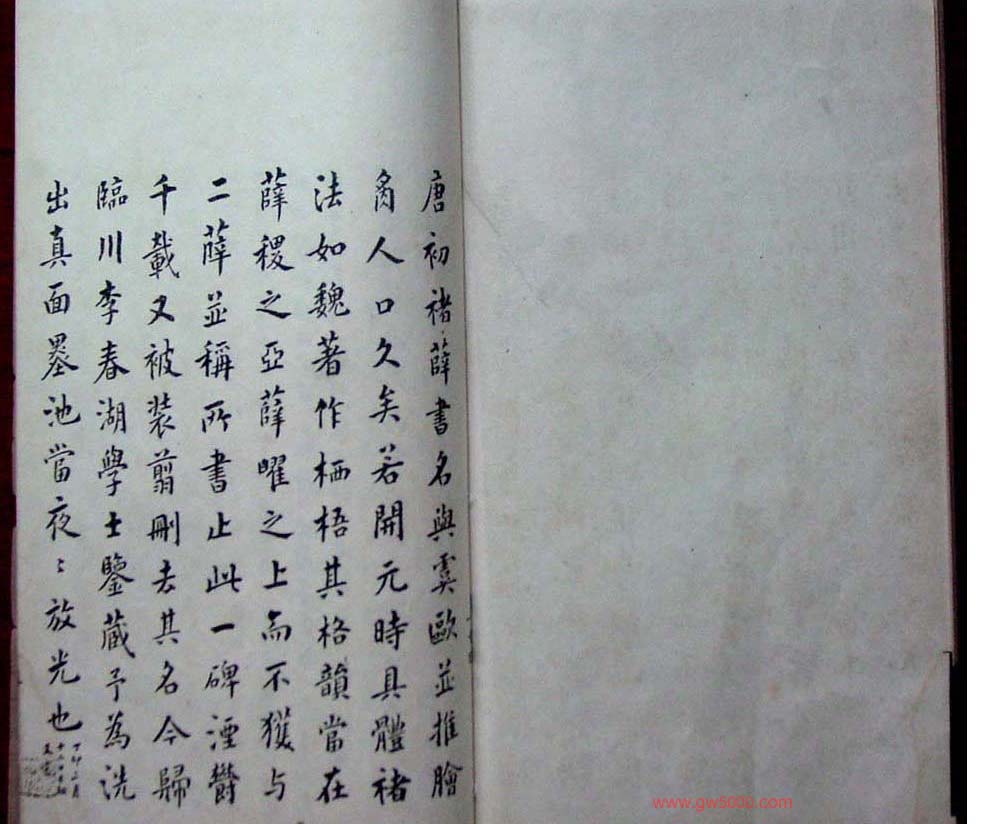 唐初褚薛書名與虞歐並推膾
臠人口久矣若開元時具體褚
法如魏著作栖梧其格韻當在
薛稷之亞薛曜之上而不獲与
二薛並稱所書止此一碑湮欝
千載又被装翦刪去其名今歸
臨川李春湖學士鑒藏予為洗
出真面墨池當夜〻放光也
丁卯
www.gw5000.com